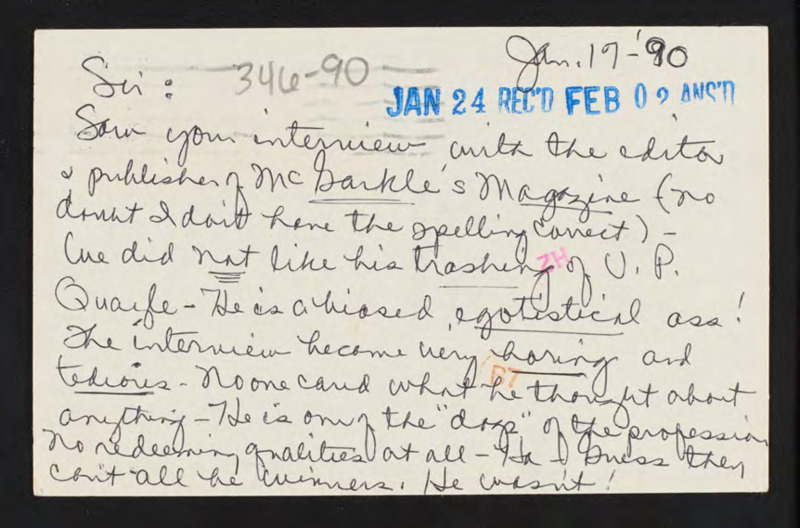 Jan. 17-'90
Sir: 346-90
JAN 24 REC'D FEB 02 ANS'D
Saw your interview with the editor
& publisher of Mc Garkle's Magazine (no
doubt I don't have the spelling correct) -
We did not like his trashing of V.P.
ZH
Quayle - He is a biased, egotistical ass!
The interview became very boring and
tedious - No one cared what he thought about
anything - He is one of the "dogs" of the profession
No redeeming qualities at all - Ha - Guess they
can't all be winners. He wasn't!